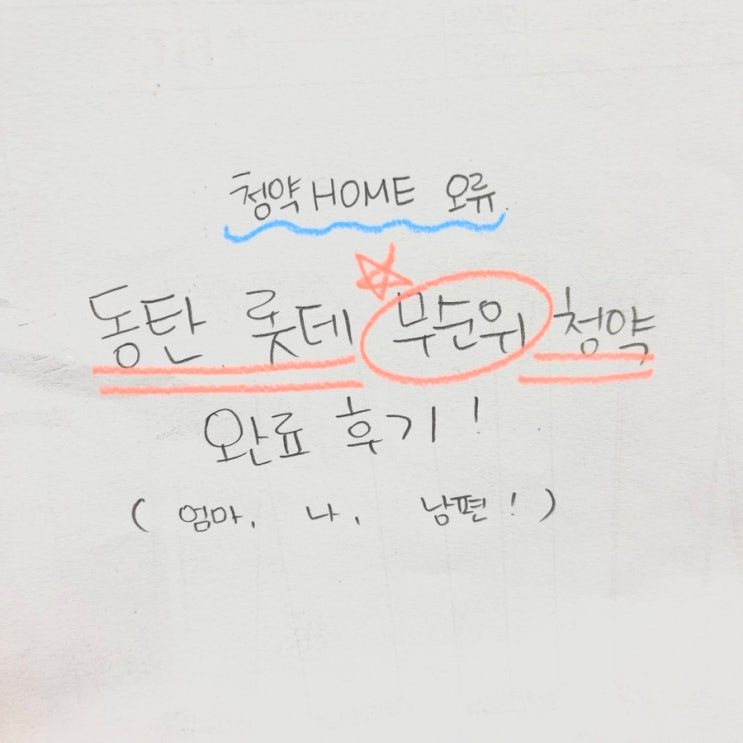 청약HOME 오류
동탄 롯데 무순위 청약
완료 후기!
( 엄마, 나, 남편! )